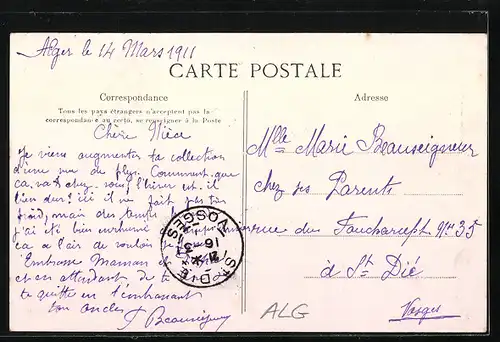 Alger le 14 Mars 1911
CARTE POSTALE
Correspondance
Tous les pays étrangers n'acceptent pas la
correspondance au recto, se renseigner à la Poste
Chère Nièce
Je viens augmenter ta collection
d'une vue de plus. Comment que
ça va chez vous l'hiver est-il
bien dur? ici il ne fait pas
froid, mais des
j'ai été bien enrhumé
ça a l'air de vouloir
Embrasse Maman
et en attendant de te
te quitte en t'embrassant
ton oncle
Beauseigneur
Adresse
Mlle Marie Beauseigneur
chez ses Parents
rue du No 35
à St Dié
Vosges
ST DIÉ
VOSGES
16
3
ALG